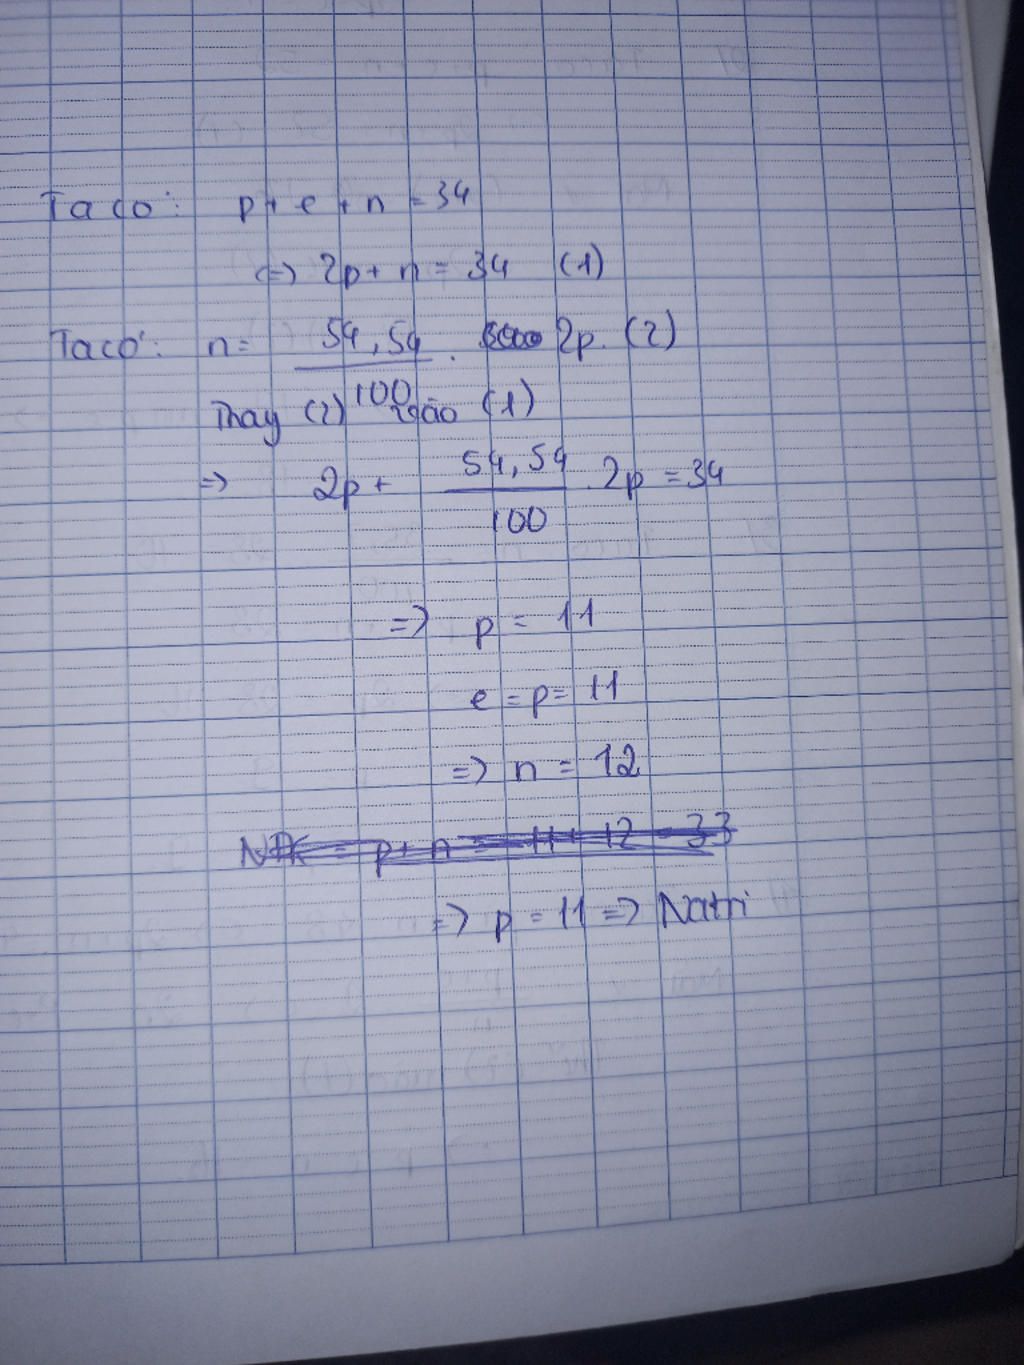 Ta có: p + e + n = 34
<=> 2p + n = 34 (1)
Ta có: n = 54,54/100 . 2p. (2)
Thay (2) vào (1)
=> 2p + 54,54/100 . 2p = 34
=> p = 11
e = p = 11
=> n = 12
NTK = p + n = 11 + 12 = 33
=> p = 11 => Natri